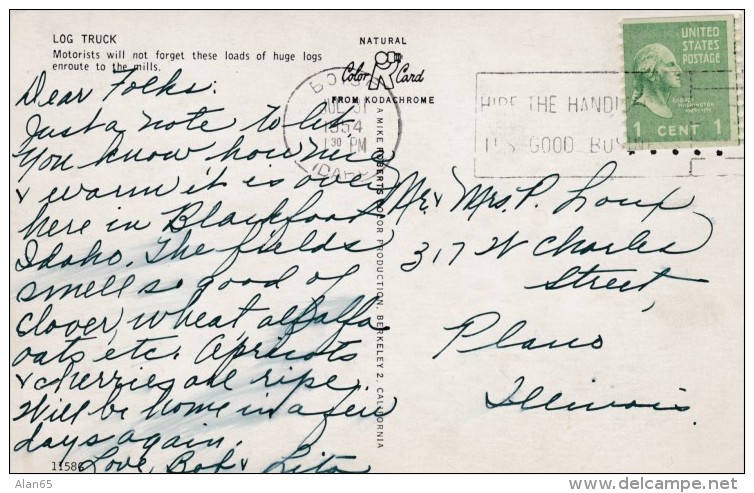 LOG TRUCK
Motorists will not forget these loads of huge logs
enroute to the mills.
NATURAL
Color Card
FROM KODACHROME
A MIKE ROBERTS COLOR PRODUCTION, BERKELEY 2, CALIFORNIA
BOISE
JUL 31
1954
1 30 PM
IDAHO
HIRE THE HANDI
IT'S GOOD BUSINE
UNITED
STATES
POSTAGE
GEORGE
WASHINGTON
1 CENT 1
Dear Folks:
Just a note to let
you know how nice
& warm it is over
here in Blackfoot
Idaho. The fields
smell so good of
clover, wheat, alfalfa
oats etc. Apricots
& cherries are ripe.
Will be home in a few
days again.
Love, Bob & Lita
Mr & Mrs. P. Loux
317 W Charles
Street,
Plano
Illinois.
11586
© Alan65
delcampe.net